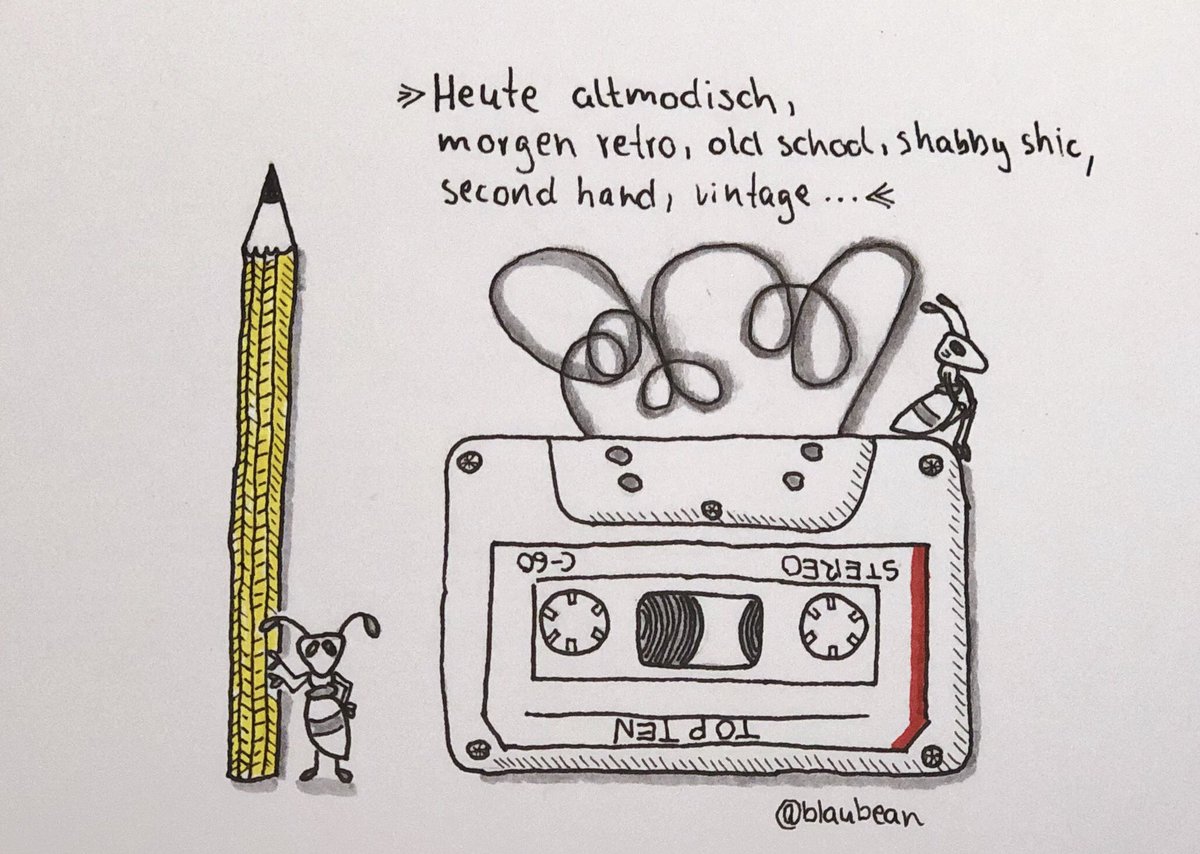 »Heute altmodisch,
morgen retro, old school, shabby shic,
second hand, vintage ...«
C-60
STEREO
TOP TEN
@blaubean